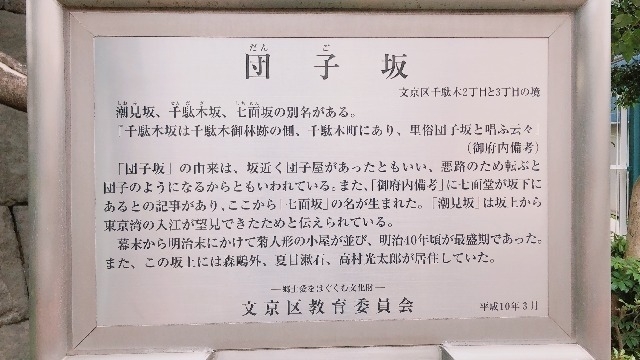 だん ご
団子坂
文京区千駄木2丁目と3丁目の境
潮見坂、千駄木坂、七面坂の別名がある。
『千駄木坂は千駄木御林跡の側、千駄木町にあり、里俗団子坂と唱ふ云々』
(御府内備考)
「団子坂」の由来は、坂近く団子屋があったともいい、悪路のため転ぶと
団子のようになるからともいわれている。また、「御府内備考」に七面堂が坂下に
あるとの記事があり、ここから「七面坂」の名が生まれた。「潮見坂」は坂上から
東京湾の入江が望見できたためと伝えられている。
幕末から明治末にかけて菊人形の小屋が並び、明治40年頃が最盛期であった。
また、この坂上には森鷗外、夏目漱石、高村光太郎が居住していた。
―郷土愛をはぐくむ文化財―
文京区教育委員会
平成10年3月